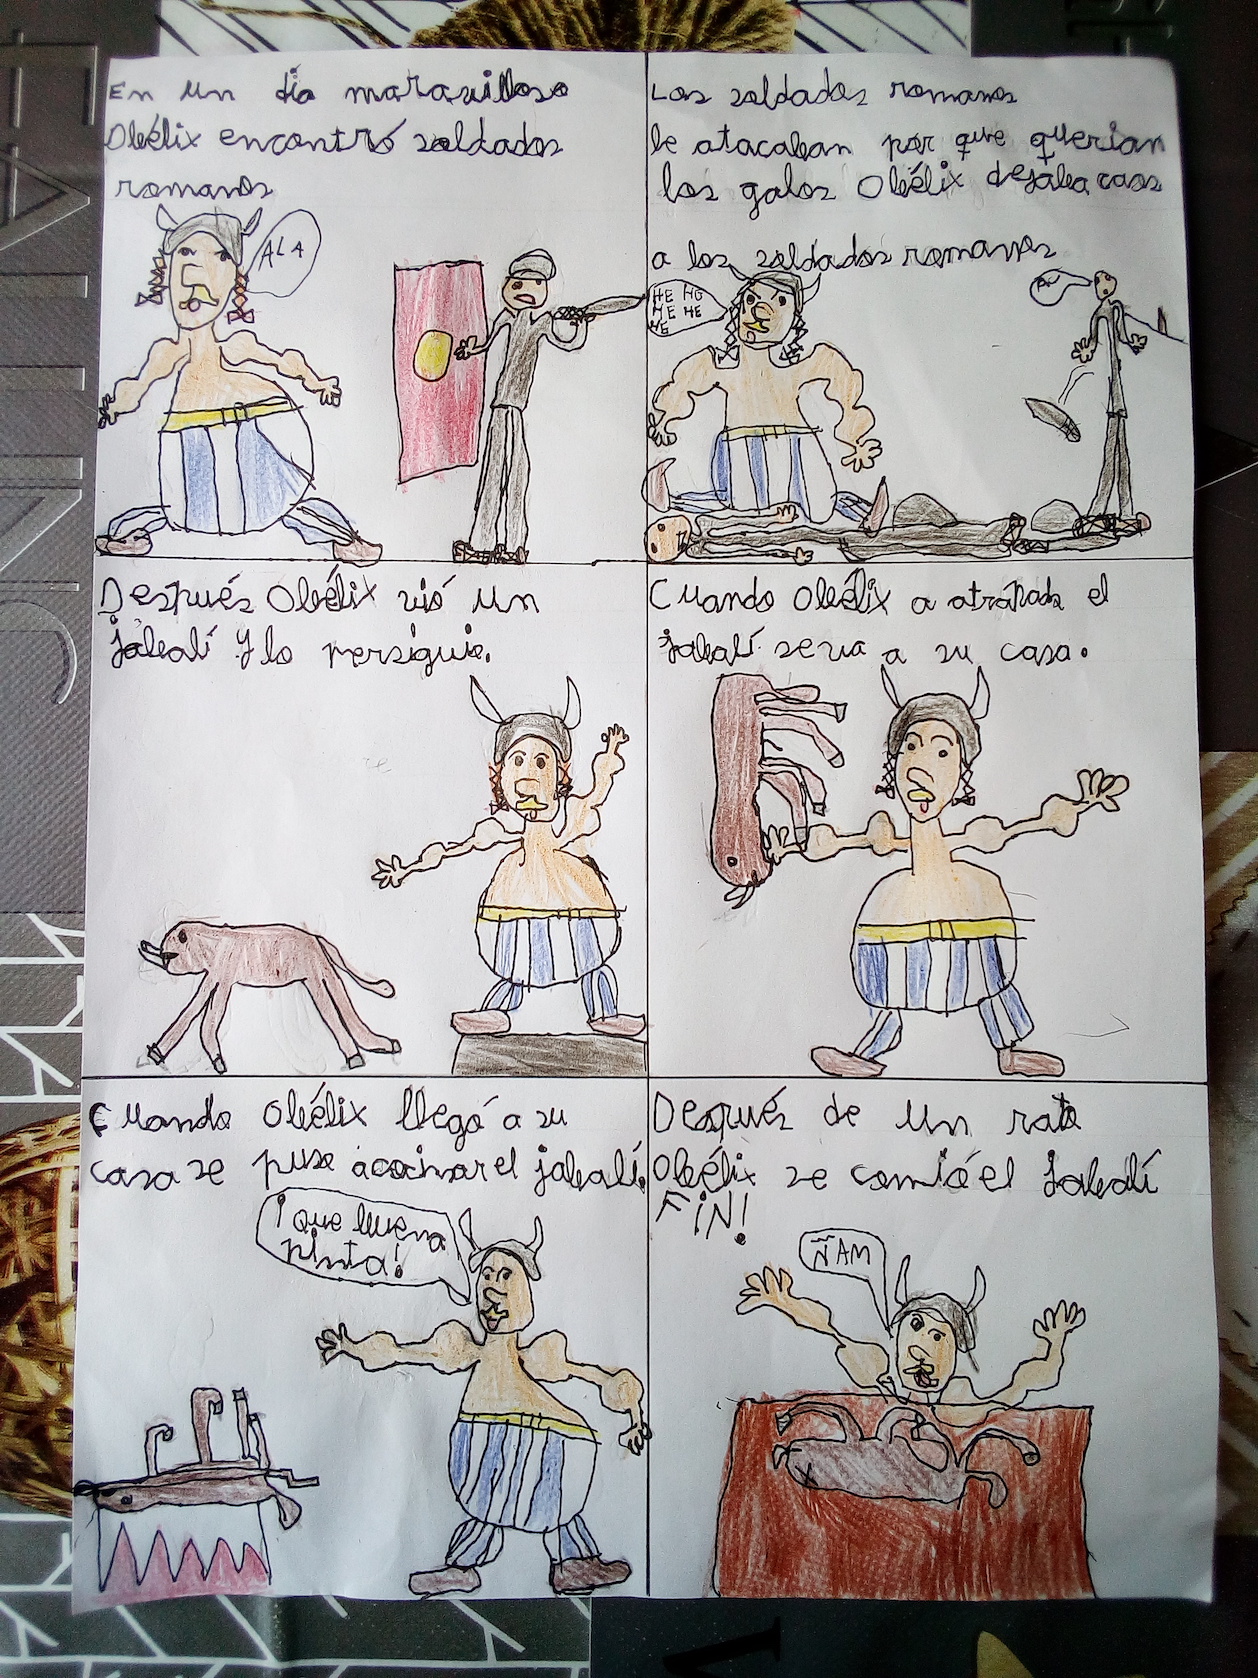 En un día maravilloso
Obélix encontró soldados
romanos
ALA
Los soldados romanos
le atacaban por que querian
los galos Obélix dejaba caos
a los soldados romanos
HE HO
HE HE
HE
Después Obélix vió un
jabalí y lo persiguio.
Cuando Obélix a atrapado el
jabalí se va a su casa.
Cuando Obélix llegó a su
casa se puso a cocinar el jabalí.
¡que buena
pinta!
Después de un rato
Obélix se comió el jabalí
FIN!
ÑAM